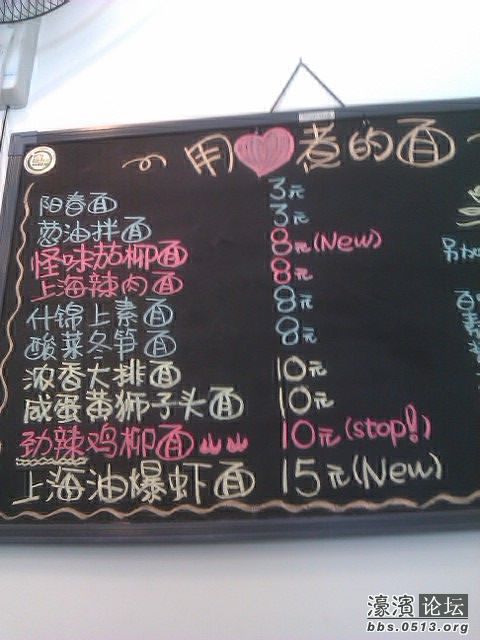 用 煮的面
阳春面 3元
葱油拌面 3元
怪味茄柳面 8元(New)
上海辣肉面 8元
什锦上素面 8元
酸菜冬笋面 8元
浓香大排面 10元
咸蛋黄狮子头面 10元
劲辣鸡柳面 10元(stop!)
上海油爆虾面 15元(New)
濠滨论坛
bbs.0513.org